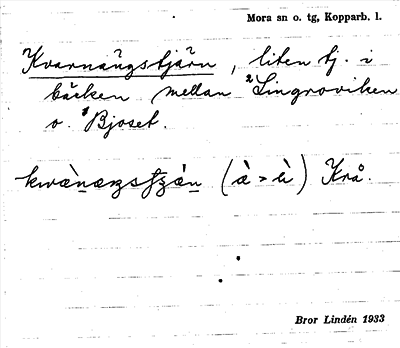 Mora sn o. tg, Kopparb. l.
Kvarnängstjärn, liten tj. i
bäcken mellan ²Lingroviken
o. ¹Bjoset.
(à > ä̀) Krå.
Bror Lindén 1933